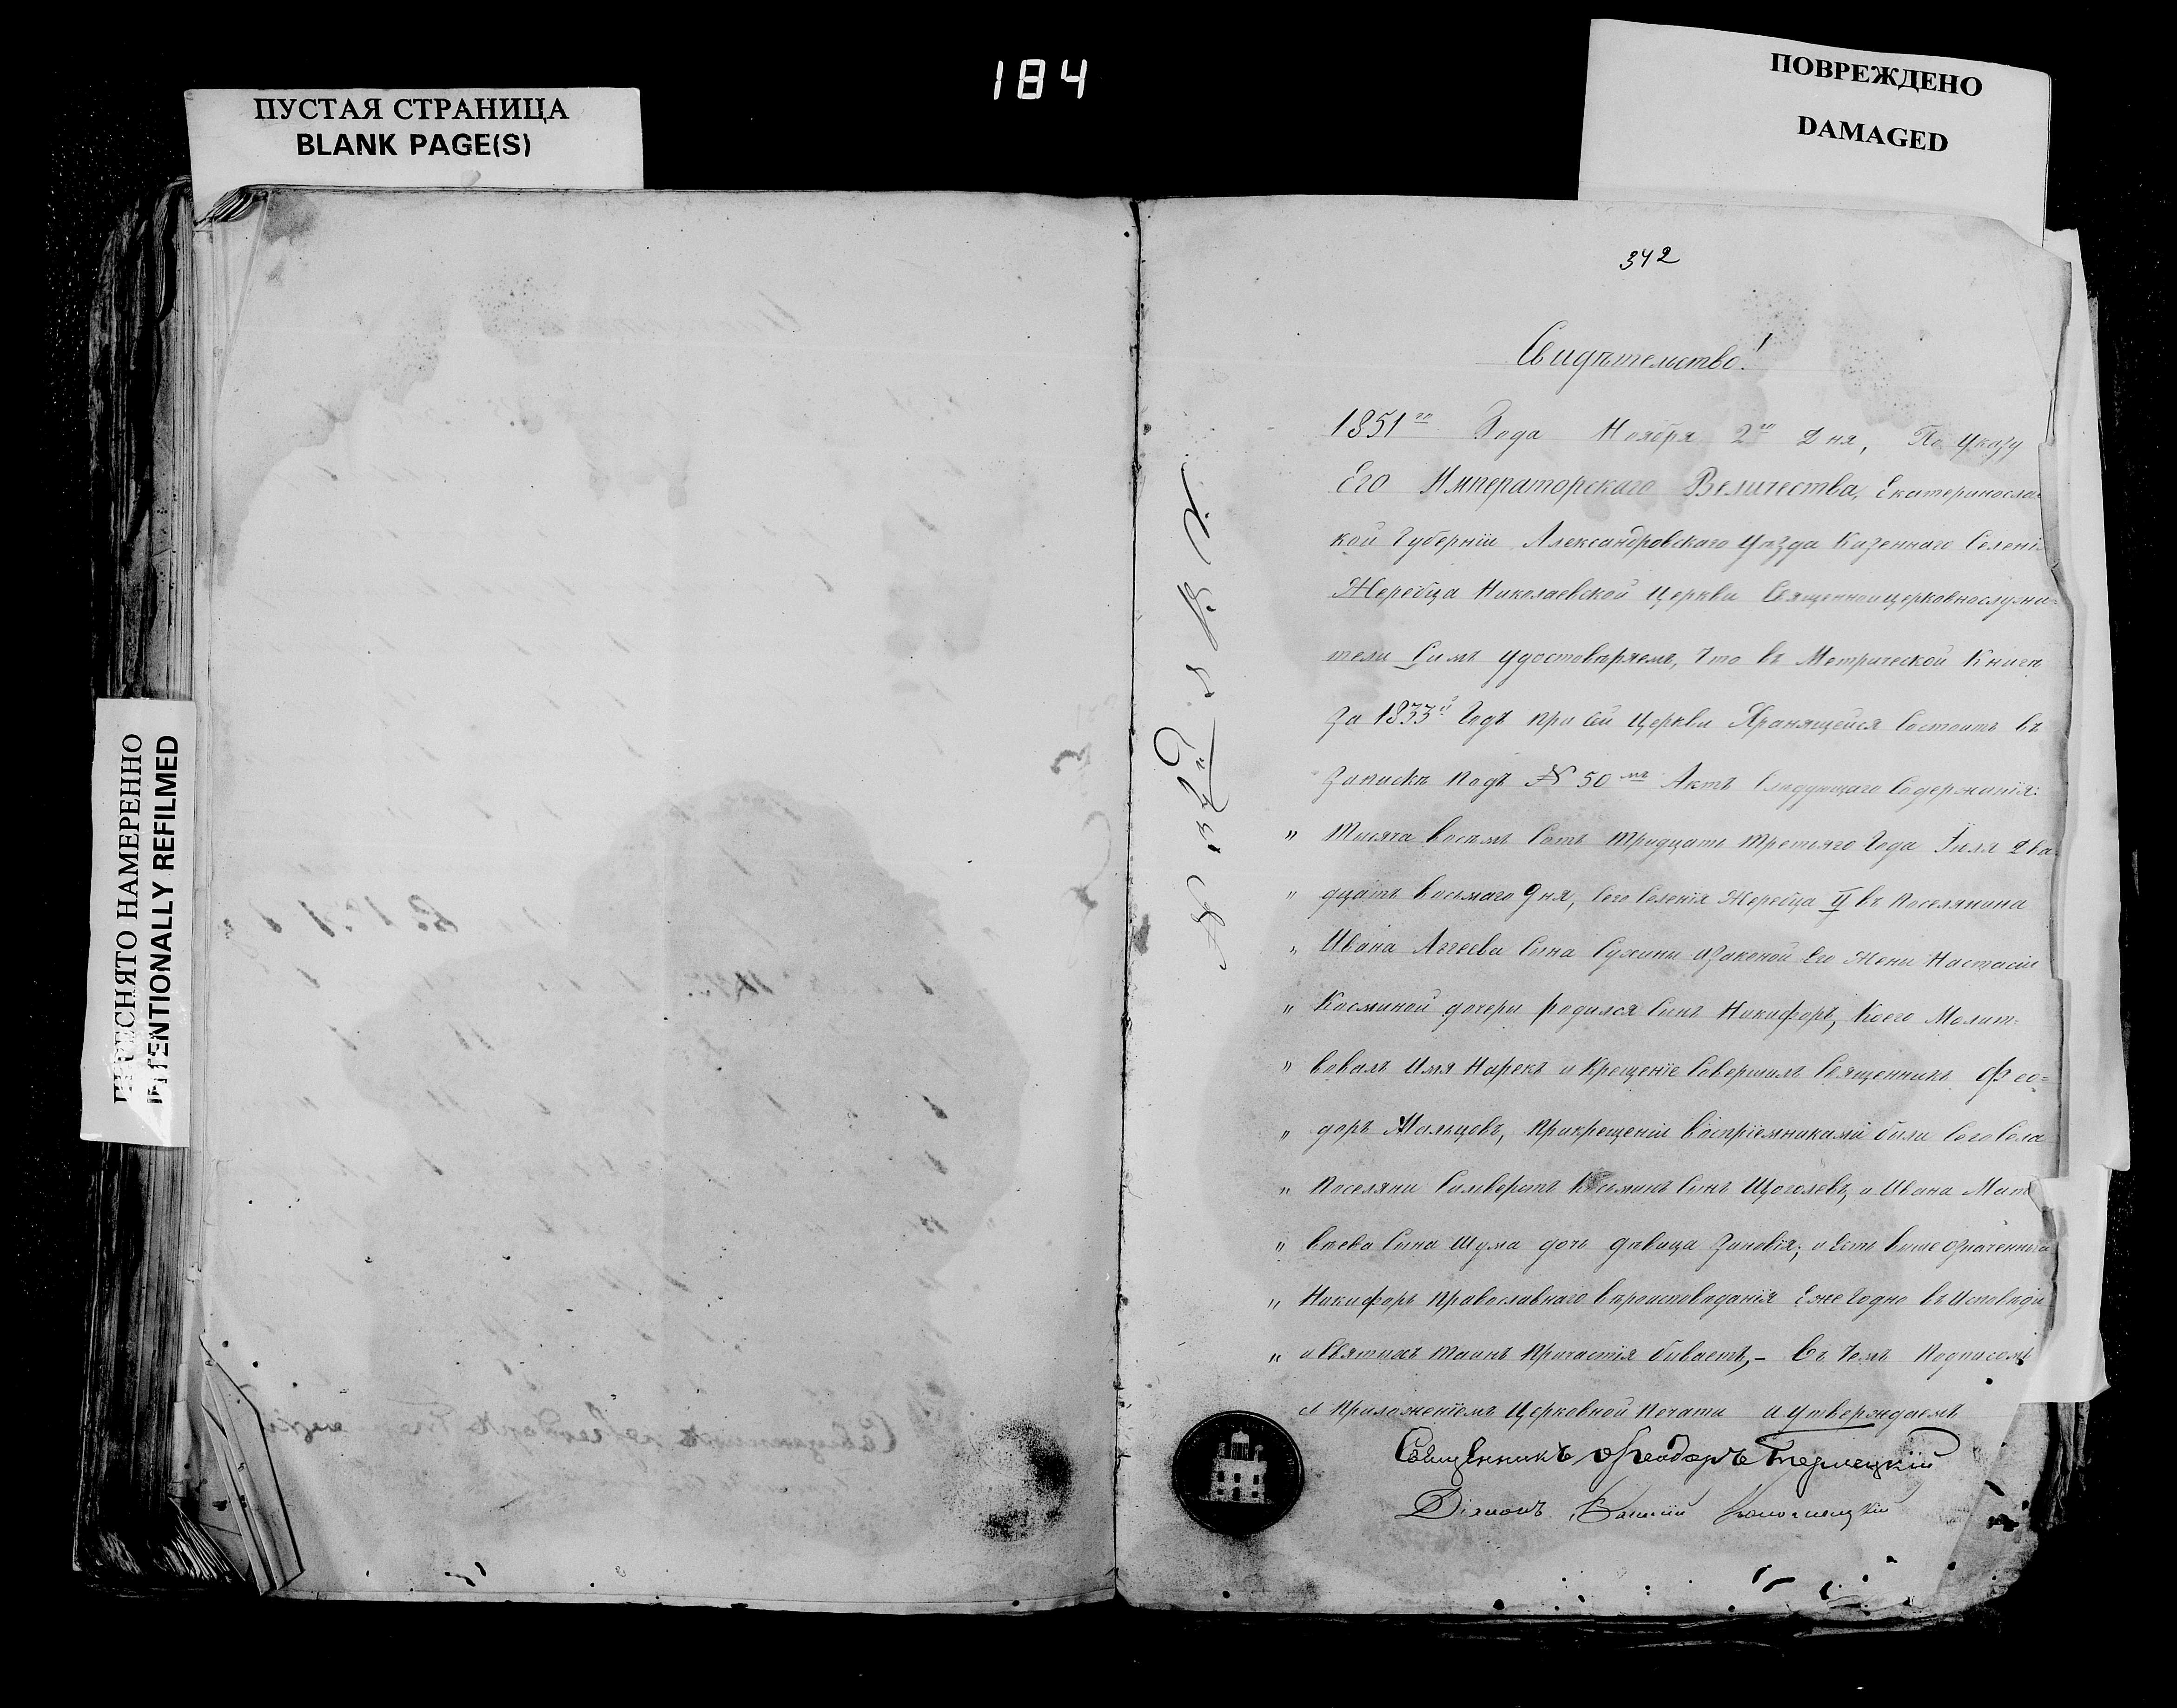 184
ПУСТАЯ СТРАНИЦА
BLANK PAGE(S)
ПОВРЕЖДЕНО
DAMAGED
ПЕРЕСНЯТО НАМЕРЕННО
INTENTIONALLY REFILMED
342
Свидѣтельство!
1851го Года Ноября 2го Дня, По Указу
Его Императорскаго Величества, Екатеринослав
кой Губерніи Александровскаго Уѣзда Казеннаго Селенія
Жеребца Николаевской Церкви Священноицерковнослужи=
тели Симъ удостовѣряемъ, Что въ Метрической Книгѣ
За 1833й Годъ при Сей Церкви Хранящейся Состоитъ въ
Запискѣ подъ № 50мъ Актъ Слѣдующаго Содержанія:
" Тисяча восемъ Сотъ тридцать третьяго Года Іюля Два
" дцать восьмаго Дня, Сего Селенія Жеребца У въ Поселянина
" Ивана Аггеева Сина Сухины изаконой Его Жены Настасіи
" Космыной дочери родился Синъ Никифоръ, Коего Молит=
" вовалъ Имя Нарекъ и Крещеніе Совершилъ Священникъ Фео=
" доръ Мальцовъ, прикрещеніи воспріемниками били Сего Села
" Поселяни Сильверстъ Космынъ Синъ Щоголевъ, и Ивана Мат
" вѣева Сина Шума дочь дѣвица Зиновія; и Есть више означенный
" Никифоръ православнаго вѣроисповѣданія Ежегодно въ Исповѣди
" и Святихъ таинъ Причастія биваетъ,- въ Чемъ Подписомъ
съ Приложеніемъ Церковной Печати и утверждаемъ
Священникъ Феодоръ Терлецкій
Діяконъ